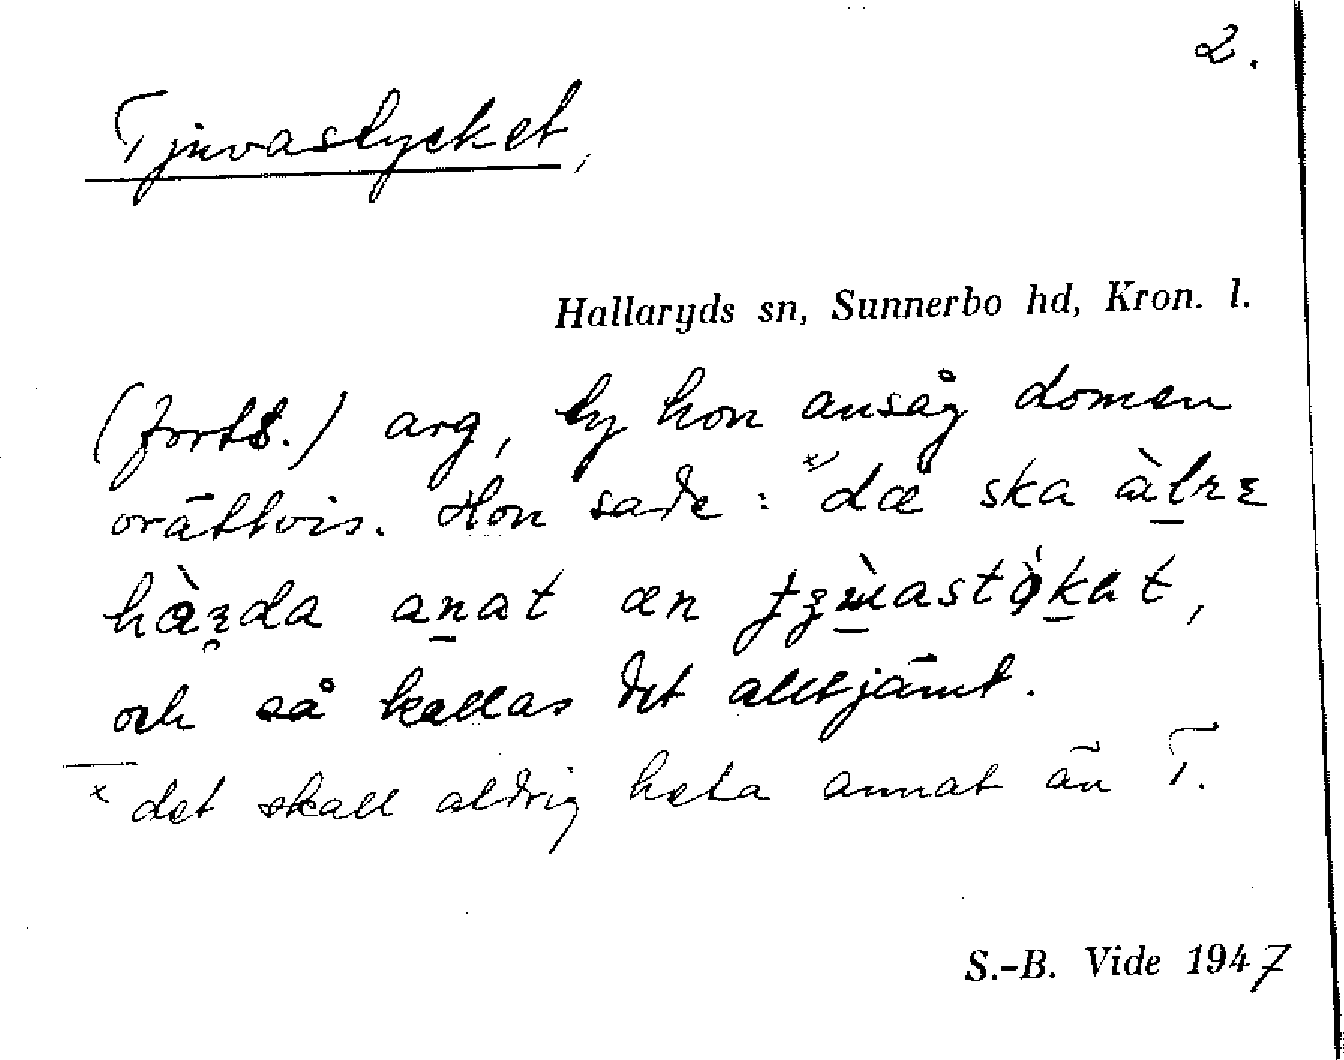 2.
Tjuvastycket,
Hallaryds sn, Sunnerbo hd, Kron. l.
(forts.) arg, ty hon ansåg domen
orättvis. Hon sade: ˣ⁾dæ ska
anat æn
och så kallas det alltjämt.
ˣ det skall aldrig heta annat än T.
S.-B. Vide 1947